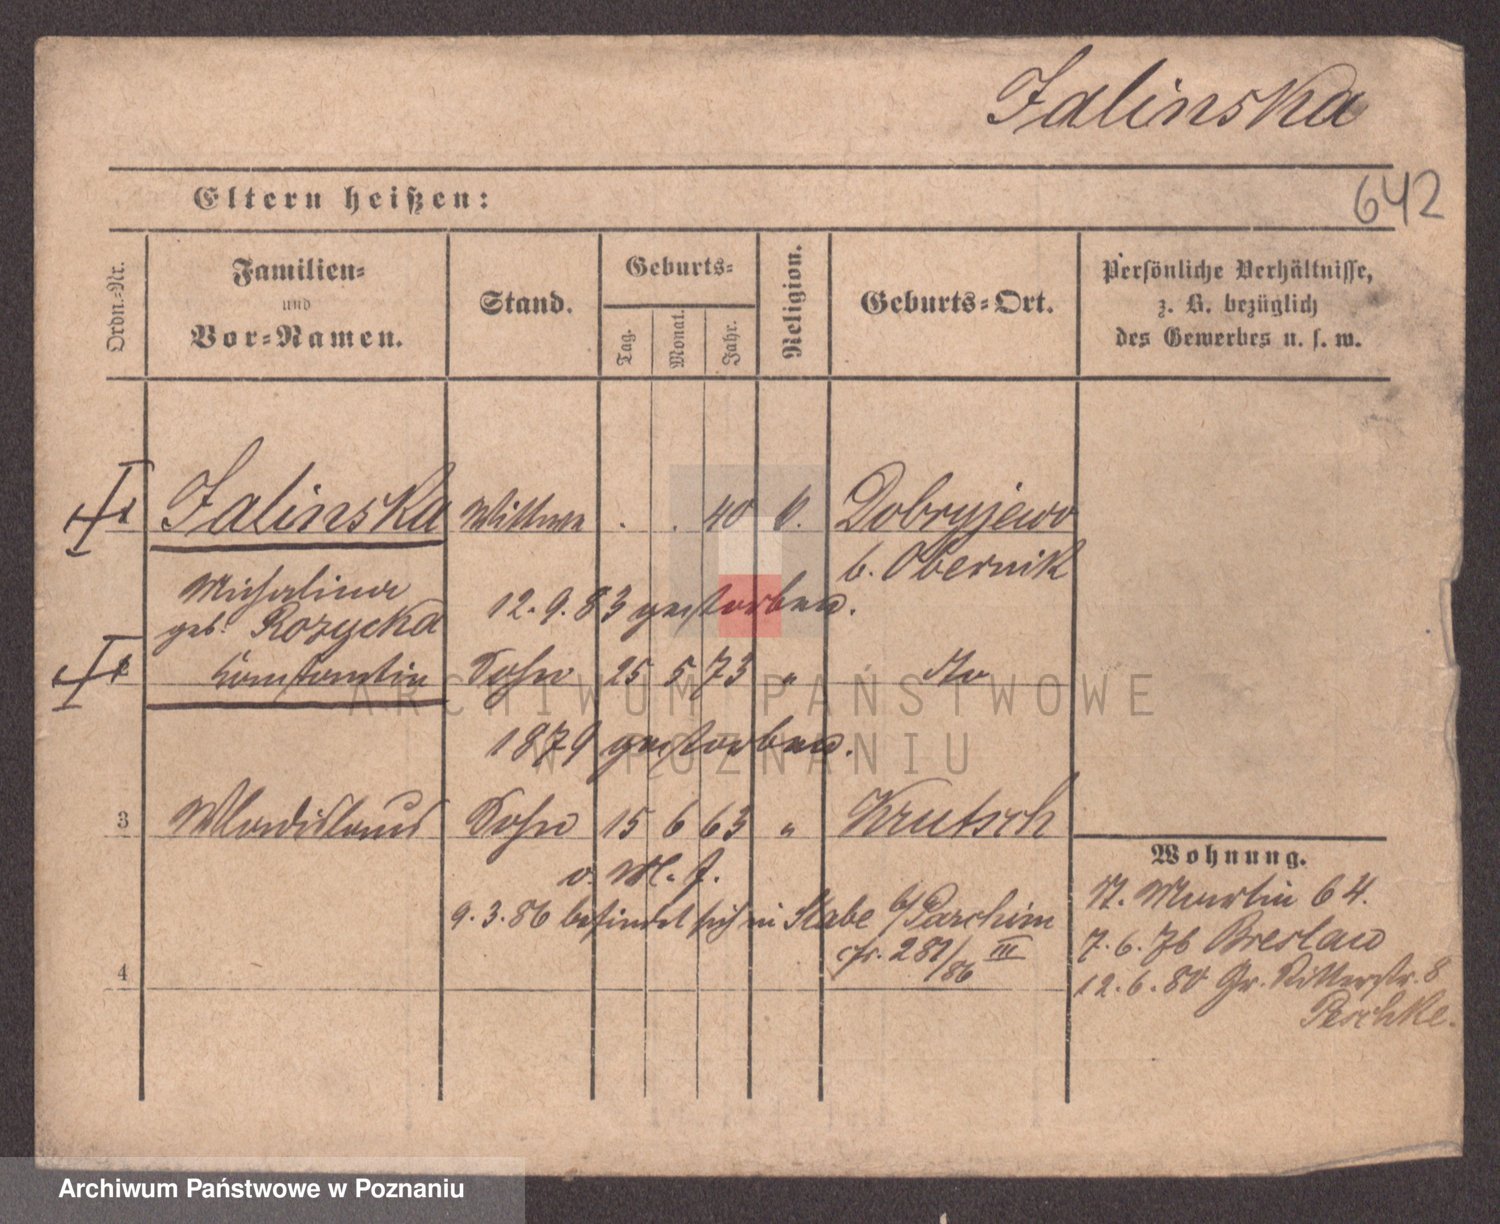 Jalinska
642
Eltern heißen:
Ordn.-Nr.
Familien-
und
Vor-Namen.
Stand.
Geburts-
Tag.
Monat.
Jahr.
Religion.
Geburts-Ort.
Persönliche Verhältnisse,
z. B. bezüglich
des Gewerbes u. s. w.
Jalinska Wittwe . . 40 Dobryjewo
b. Obernik
Michalina
geb. Rozycka
12. 9. 83 gestorben.
Konstantin Sohn 25 5 73 " dto
1879 gestorben.
3 Wladislaus Sohn 15 6 63 " Krutsch
v. M. J.
9. 3. 86 befindet sich in Slabe b/ Parchim
cfr. 281/86 III
4
Wohnung.
St. Martin 64.
7. 6. 76 Breslau
12. 6. 80 Gr. Ritterstr. 8
Peschke.
ARCHIWUM PAŃSTWOWE
W POZNANIU
Archiwum Państwowe w Poznaniu